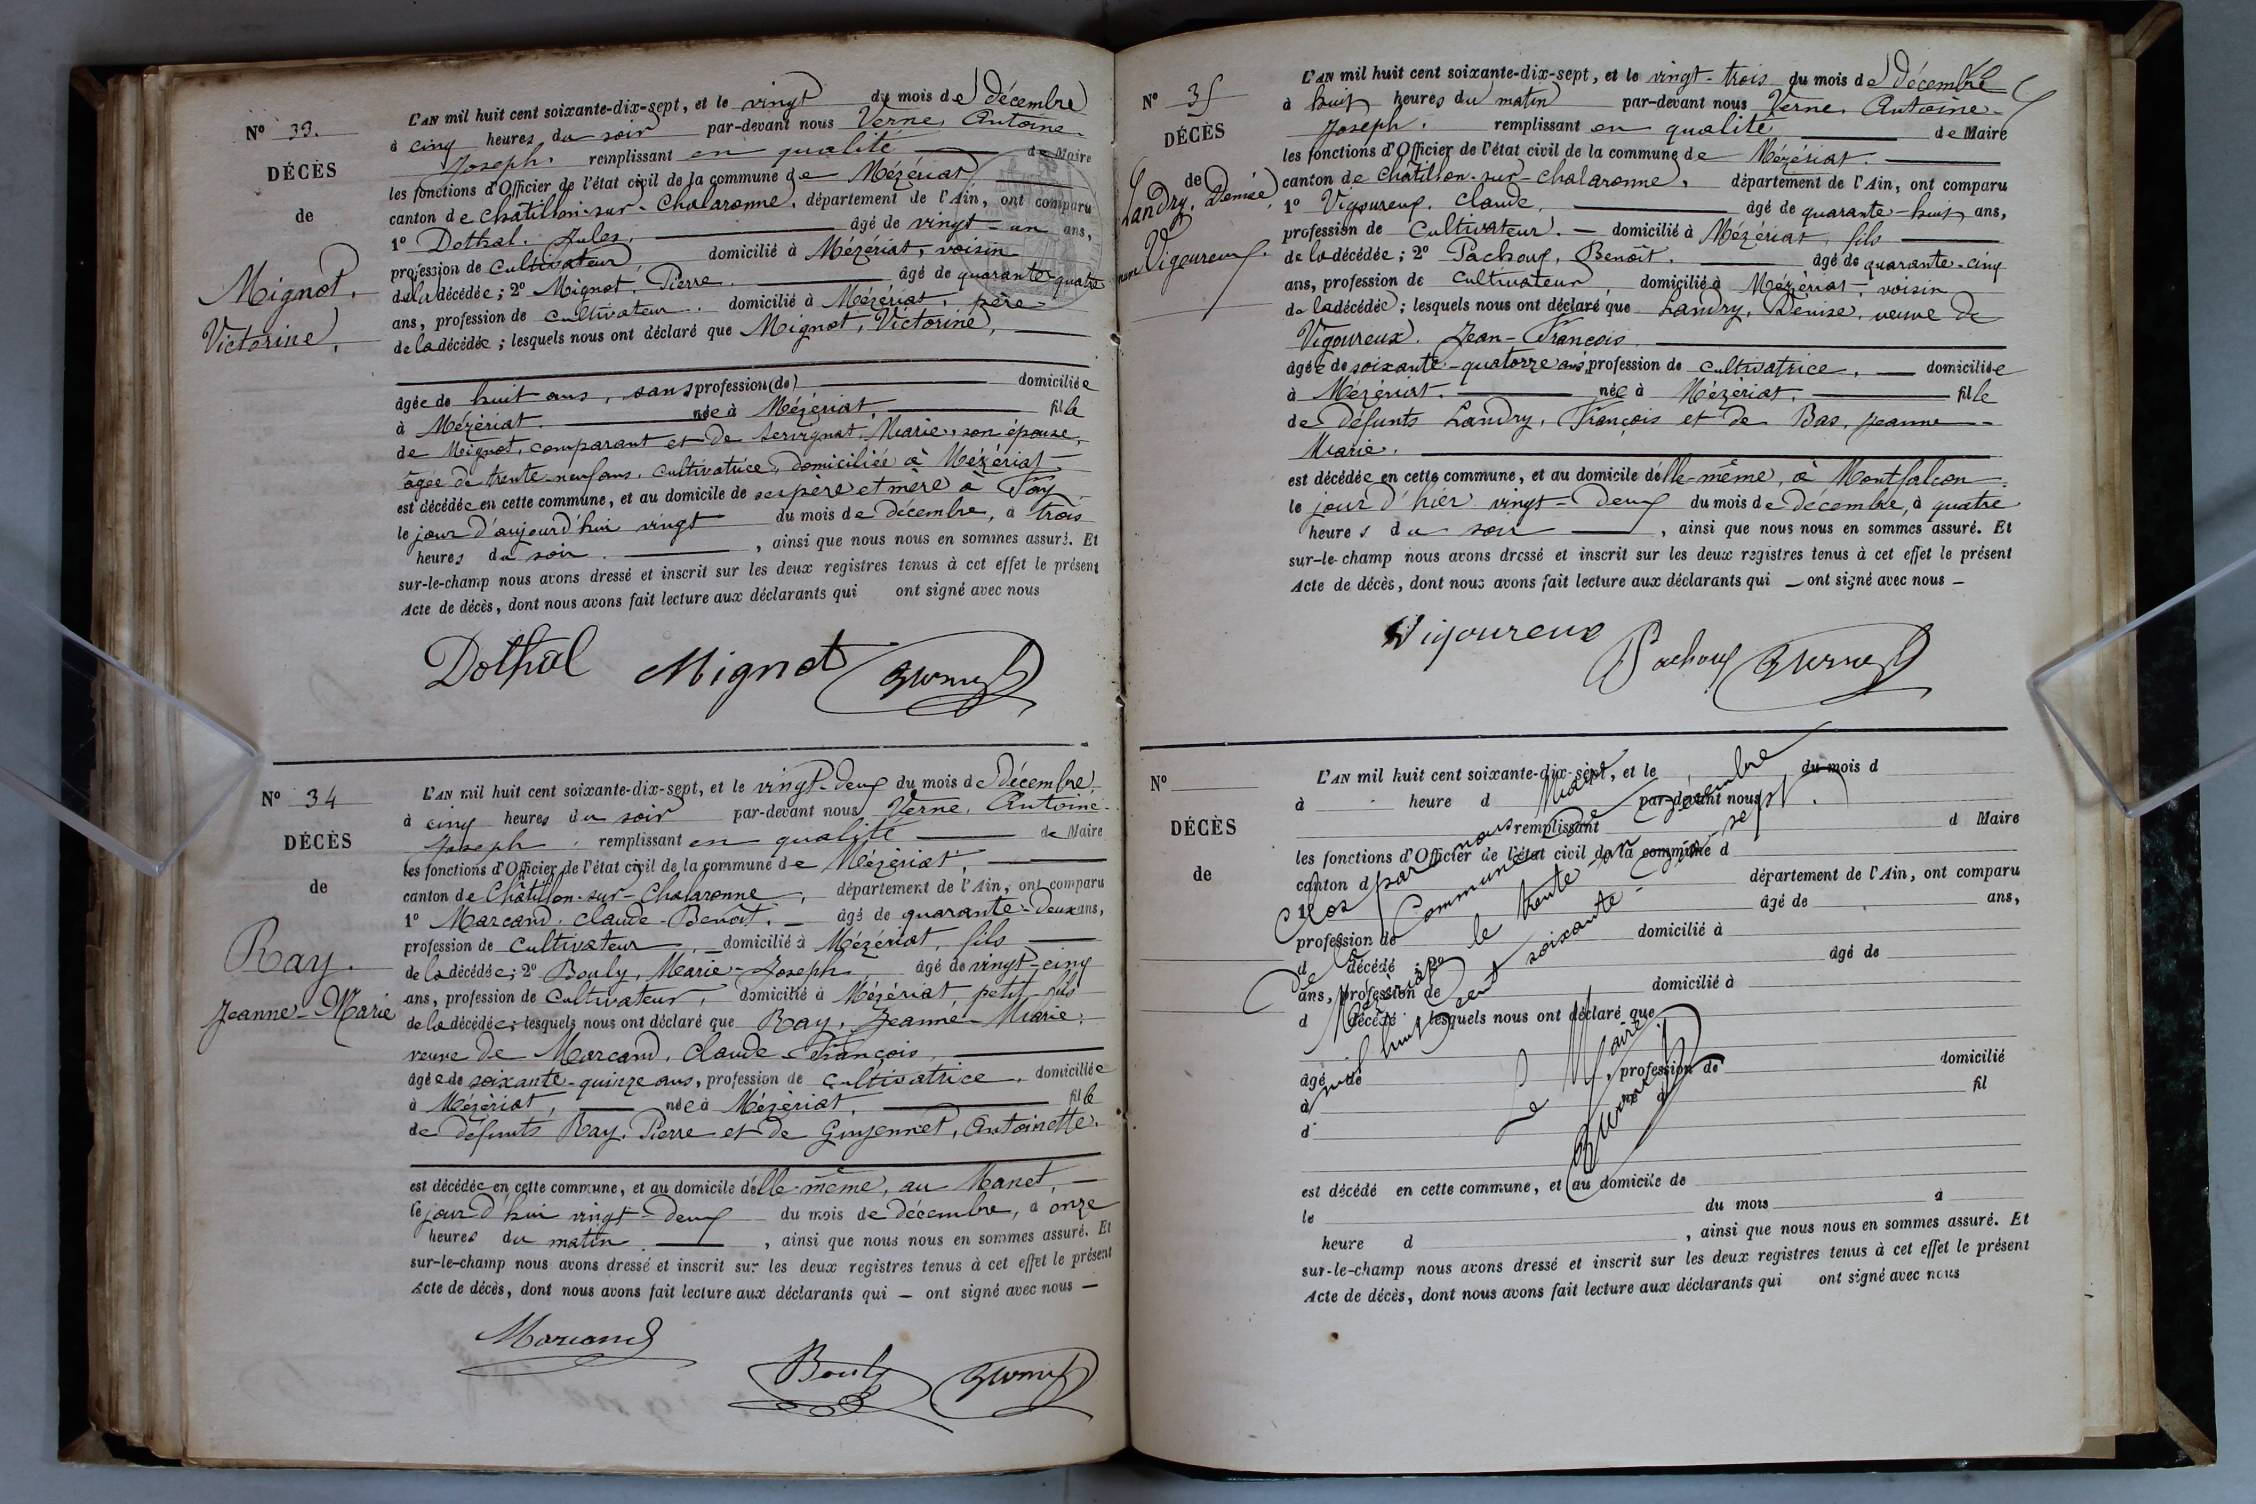 N° 33.
DÉCÈS
de
Mignot,
Victorine,
L'AN mil huit cent soixante-dix-sept, et le vingt du mois de décembre
à cinq heures du soir par-devant nous Verne, Antoine-
Joseph, remplissant en qualité de Maire
les fonctions d'Officier de l'état civil de la commune de Mézériat
canton de Châtillon-sur-Chalaronne, département de l'Ain, ont comparu
1° Dothal, Jules, âgé de vingt-un ans,
profession de cultivateur domicilié à Mézériat, voisin
de la décédée; 2° Mignot, Pierre, âgé de quarante-quatre
ans, profession de cultivateur, domicilié à Mézériat, père
de la décédée; lesquels nous ont déclaré que Mignot, Victorine,
âgée de huit ans, sans profession (de) domiciliée
à Mézériat, née à Mézériat, fille
de Mignot, comparant et de Servignat, Marie, son épouse,
âgée de trente-neuf ans, cultivatrice, domiciliée à Mézériat
est décédée en cette commune, et au domicile de ses père et mère à Fay
le jour d'aujourd'hui vingt du mois de décembre, à trois
heures du soir, ainsi que nous nous en sommes assuré. Et
sur-le-champ nous avons dressé et inscrit sur les deux registres tenus à cet effet le présent
Acte de décès, dont nous avons fait lecture aux déclarants qui ont signé avec nous
Dothal Mignot Verne
N° 34
DÉCÈS
de
Ray,
Jeanne-Marie
L'AN mil huit cent soixante-dix-sept, et le vingt-deux du mois de décembre,
à cinq heures du soir par-devant nous Verne, Antoine-
Joseph, remplissant en qualité de Maire
les fonctions d'Officier de l'état civil de la commune de Mézériat,
canton de Châtillon-sur-Chalaronne, département de l'Ain, ont comparu
1° Marcand, Claude-Benoît, âgé de quarante-deux ans,
profession de cultivateur, domicilié à Mézériat, fils
de la décédée; 2° Bouly, Marie-Joseph, âgé de vingt-cinq
ans, profession de cultivateur, domicilié à Mézériat, petit-fils
de la décédée; lesquels nous ont déclaré que Ray, Jeanne-Marie,
veuve de Marcand, Claude-François,
âgée de soixante-quinze ans, profession de cultivatrice, domiciliée
à Mézériat, née à Mézériat, fille
de défunts Ray, Pierre et de Guyennet, Antoinette,
est décédée en cette commune, et au domicile d'elle-même, au Manet,
le jour d'hui vingt-deux du mois de décembre, à onze
heures du matin, ainsi que nous nous en sommes assuré. Et
sur-le-champ nous avons dressé et inscrit sur les deux registres tenus à cet effet le présent
Acte de décès, dont nous avons fait lecture aux déclarants qui — ont signé avec nous —
Marcand
Bouly Verne
N° 35
DÉCÈS
de
Landry, Denise,
Vigoureux.
L'AN mil huit cent soixante-dix-sept, et le vingt-trois du mois de décembre
à huit heures du matin par-devant nous Verne, Antoine-
Joseph, remplissant en qualité de Maire
les fonctions d'Officier de l'état civil de la commune de Mézériat,
canton de Châtillon-sur-Chalaronne, département de l'Ain, ont comparu
1° Vigoureux, Claude, âgé de quarante-huit ans,
profession de cultivateur, domicilié à Mézériat, fils
de la décédée; 2° Pachoux, Benoît, âgé de quarante-cinq
ans, profession de cultivateur, domicilié à Mézériat, voisin
de la décédée; lesquels nous ont déclaré que Landry, Denise, veuve de
Vigoureux, Jean-François,
âgée de soixante-quatorze ans, profession de cultivatrice, domiciliée
à Mézériat, née à Mézériat, fille
de défunts Landry, François et de Bas, Jeanne-
Marie,
est décédée en cette commune, et au domicile d'elle-même, à Montfalcon
le jour d'hier vingt-deux du mois de décembre, à quatre
heures du soir, ainsi que nous nous en sommes assuré. Et
sur-le-champ nous avons dressé et inscrit sur les deux registres tenus à cet effet le présent
Acte de décès, dont nous avons fait lecture aux déclarants qui — ont signé avec nous —
Vigoureux
Pachoux Verne
N°
DÉCÈS
de
L'AN mil huit cent soixante-dix-sept, et le du mois d
à heure d par-devant nous
remplissant d Maire
les fonctions d'Officier de l'état civil de la commune d
canton d département de l'Ain, ont comparu
1° âgé de ans,
profession de domicilié à
d décédé ; 2° âgé de
ans, profession de domicilié à
d décédé lesquels nous ont déclaré que
âgé de profession de domicilié
à à fil
d
est décédé en cette commune, et au domicile de
le du mois à
heure d , ainsi que nous nous en sommes assuré. Et
sur-le-champ nous avons dressé et inscrit sur les deux registres tenus à cet effet le présent
Acte de décès, dont nous avons fait lecture aux déclarants qui ont signé avec nous
Clos par nous Maire
de la Commune de
Mézériat le trente-un décembre
mil huit cent soixante-dix-sept.
Le Maire
Verne